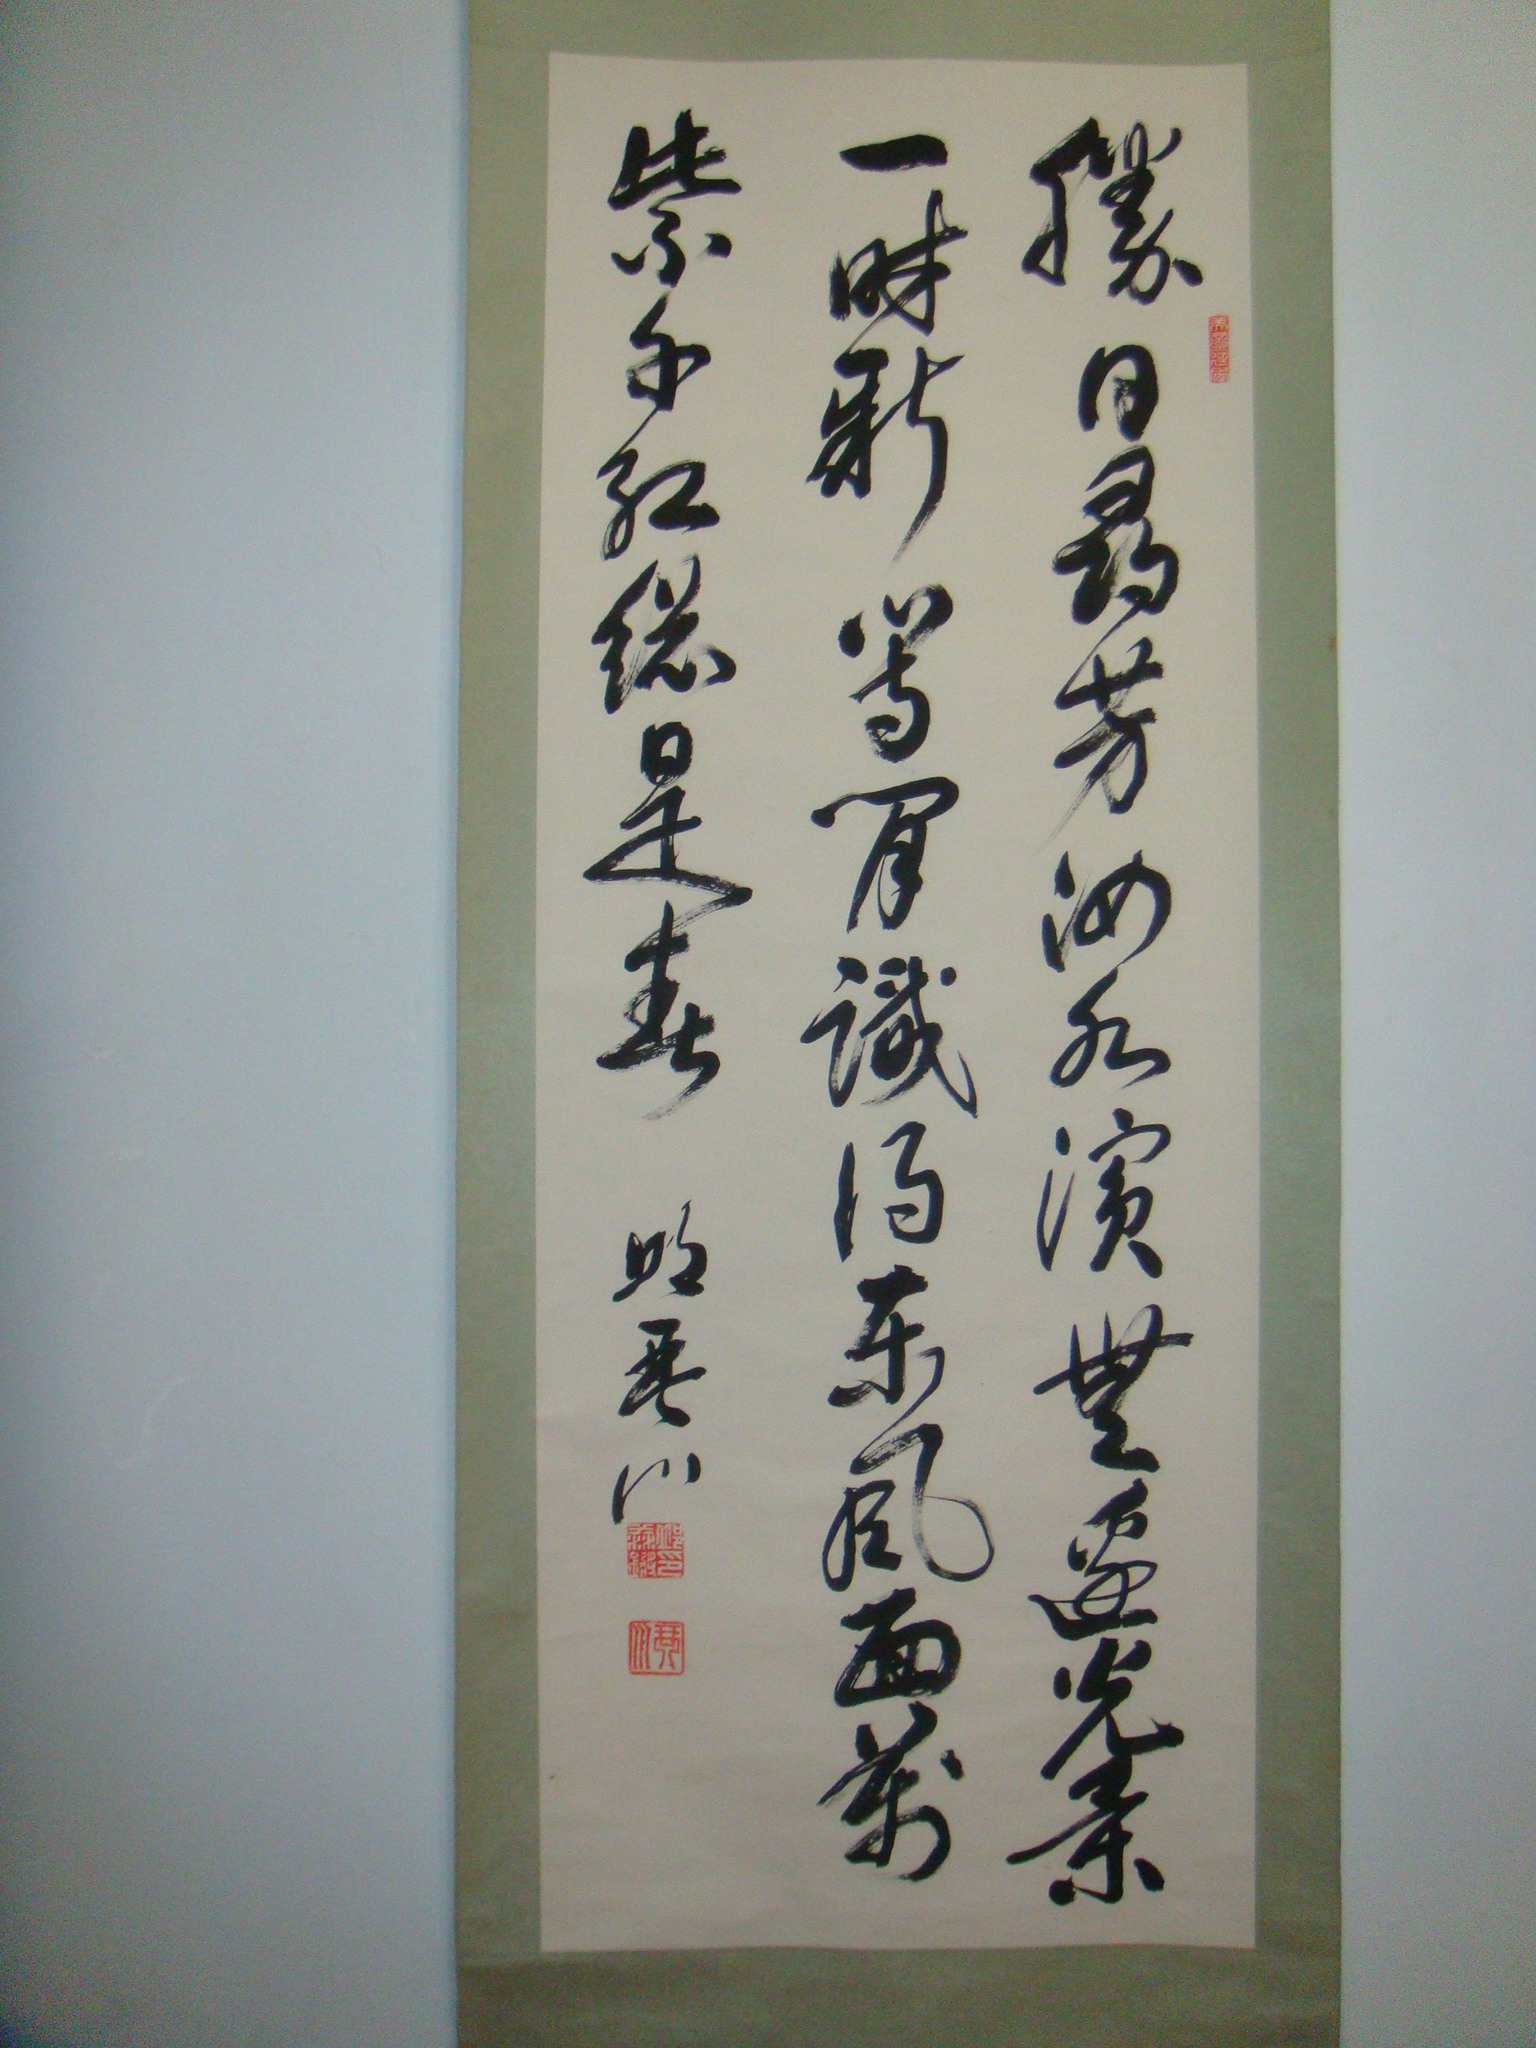 勝日尋芳泗水濱無邊光景
一時新等閒識得東風面萬
紫千紅總是春 琴川
琴川